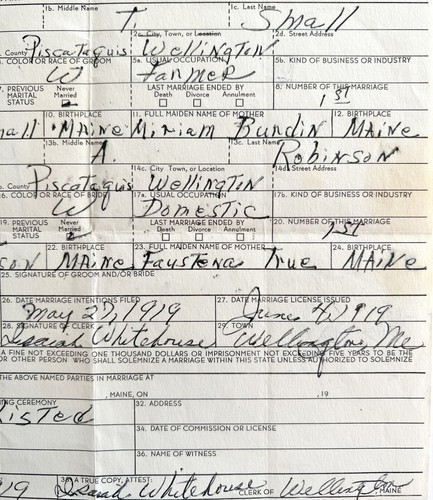 1b. Middle Name 1c. Last Name
T. Small
County 2c. City, Town, or Location 2d. Street Address
Piscataquis Wellington
COLOR OR RACE OF GROOM 5a. USUAL OCCUPATION 5b. KIND OF BUSINESS OR INDUSTRY
W Farmer
PREVIOUS MARITAL STATUS Never Married LAST MARRIAGE ENDED BY Death Divorce Annulment 8. NUMBER OF THIS MARRIAGE
1st
10. BIRTHPLACE 11. FULL MAIDEN NAME OF MOTHER 12. BIRTHPLACE
mall Maine Miriam Rundin Maine
13b. Middle Name 13c. Last Name
A. Robinson
County 14c. City, Town, or Location 14d. Street Address
Piscataquis Wellington
16. COLOR OR RACE OF BRIDE 17a. USUAL OCCUPATION 17b. KIND OF BUSINESS OR INDUSTRY
W Domestic
19. PREVIOUS MARITAL STATUS Never Married LAST MARRIAGE ENDED BY Death Divorce Annulment 20. NUMBER OF THIS MARRIAGE
1st
22. BIRTHPLACE 23. FULL MAIDEN NAME OF MOTHER 24. BIRTHPLACE
son Maine Faustena True Maine
25. SIGNATURE OF GROOM AND/OR BRIDE
26. DATE MARRIAGE INTENTIONS FILED 27. DATE MARRIAGE LICENSE ISSUED
May 27, 1919 June 4, 1919
28. SIGNATURE OF CLERK 29. TOWN
Isaiah Whitehouse Wellington, Me
A FINE NOT EXCEEDING ONE THOUSAND DOLLARS OR IMPRISONMENT NOT EXCEEDING FIVE YEARS TO BE THE
OR OTHER PERSON WHO SHALL SOLEMNIZE A MARRIAGE WITHIN THIS STATE UNLESS AUTHORIZED TO SOLEMNIZE
THE ABOVE NAMED PARTIES IN MARRIAGE AT
, MAINE, ON , 19
ING CEREMONY 32. ADDRESS
isted
34. DATE OF COMMISSION OR LICENSE
36. NAME OF WITNESS
38. A TRUE COPY, ATTEST:
19 Isaiah Whitehouse CLERK OF Wellington MAINE